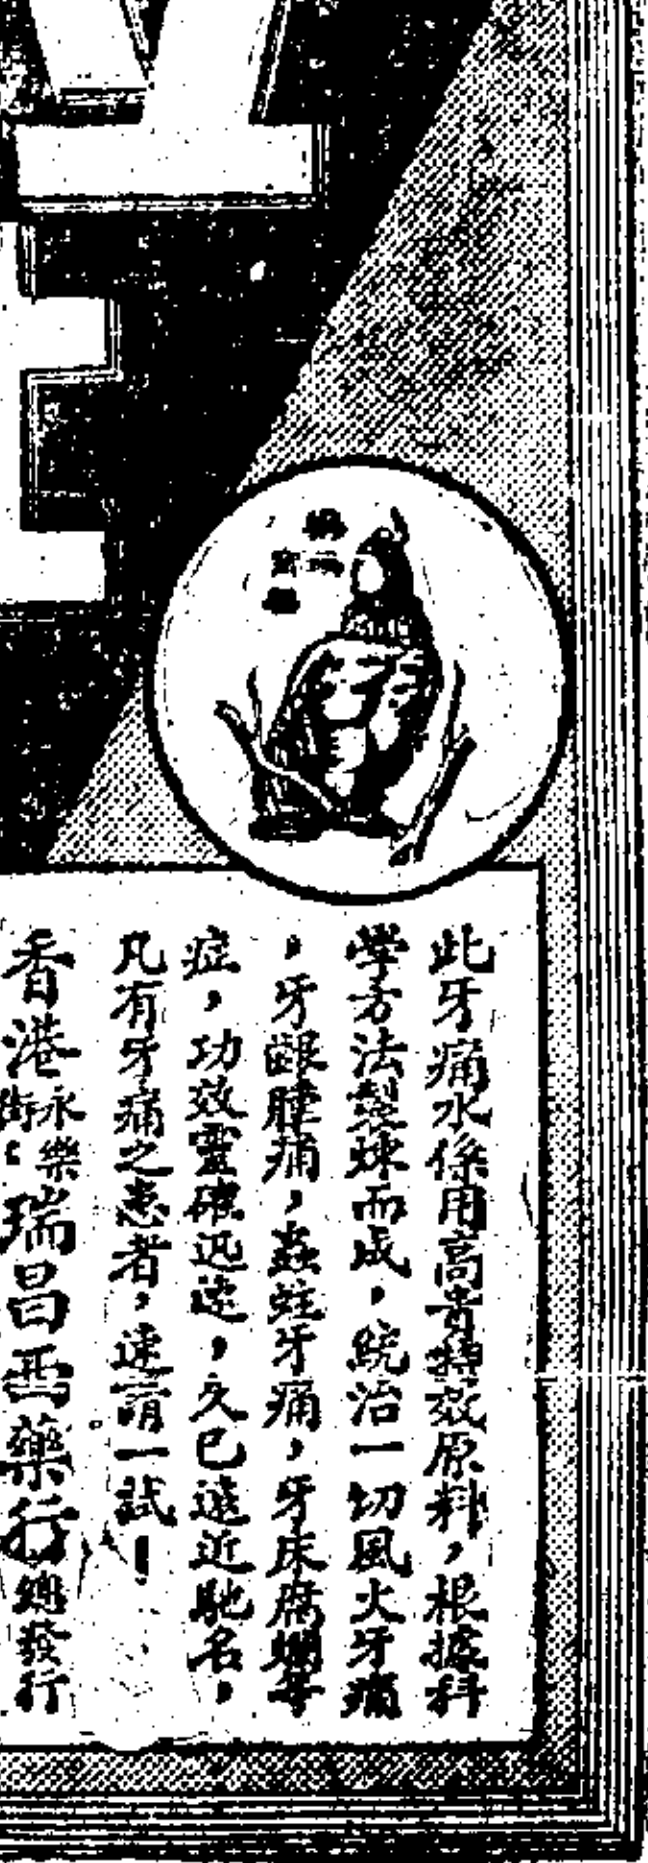 此牙痛水係用高貴特效原料，根據科
學方法製煉而成，統治一切風火牙痛
，牙齦腫痛，蟲蛀牙痛，牙床腐爛等
症，功效靈確迅速，久已遠近馳名，
凡有牙痛之患者，速請一試！
香港永樂街：瑞昌西藥行總發行